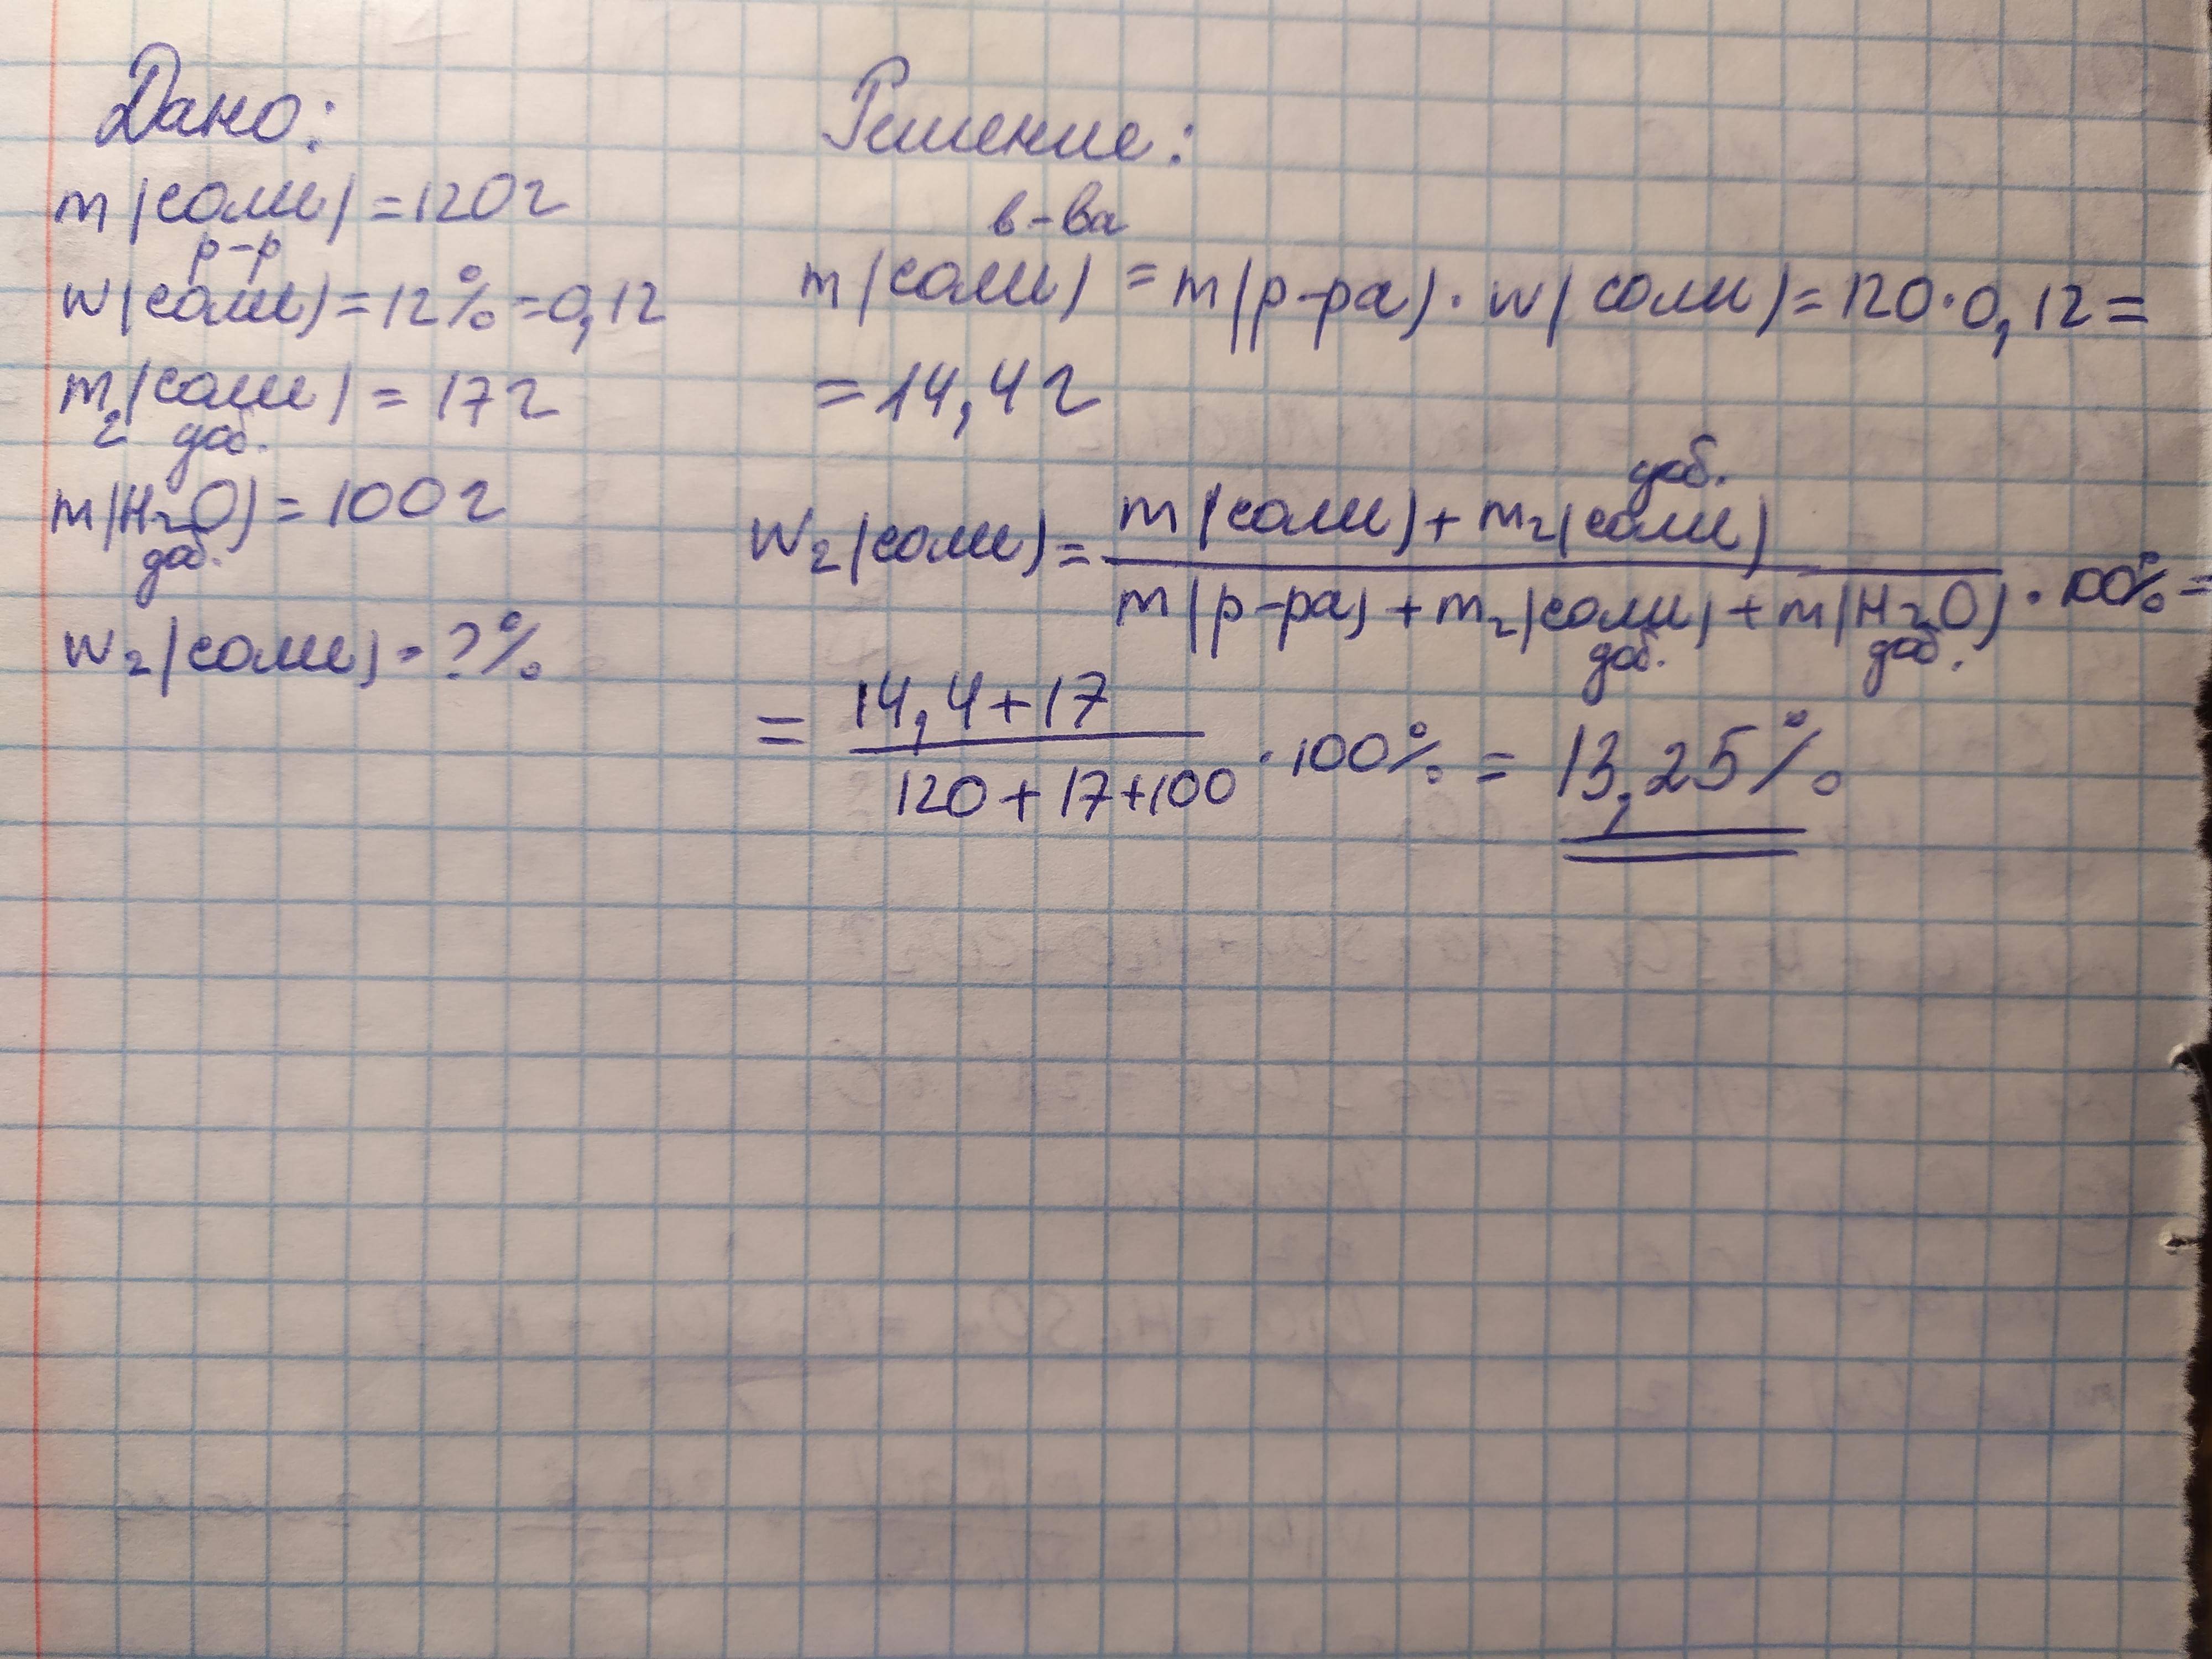 Дано:
m(соли) = 120 г
р-р
w(соли) = 12% = 0,12
m₂(соли) = 17 г
доб.
m(H₂O) = 100 г
доб.
w₂(соли) - ?%
Решение:
в-ва
m(соли) = m(р-ра) · w(соли) = 120 · 0,12 =
= 14,4 г
доб.
w₂(соли) = m(соли) + m₂(соли)
m(р-ра) + m₂(соли) + m(H₂O) · 100% =
доб. доб.
= 14,4 + 17
120 + 17 + 100 · 100% = 13,25%